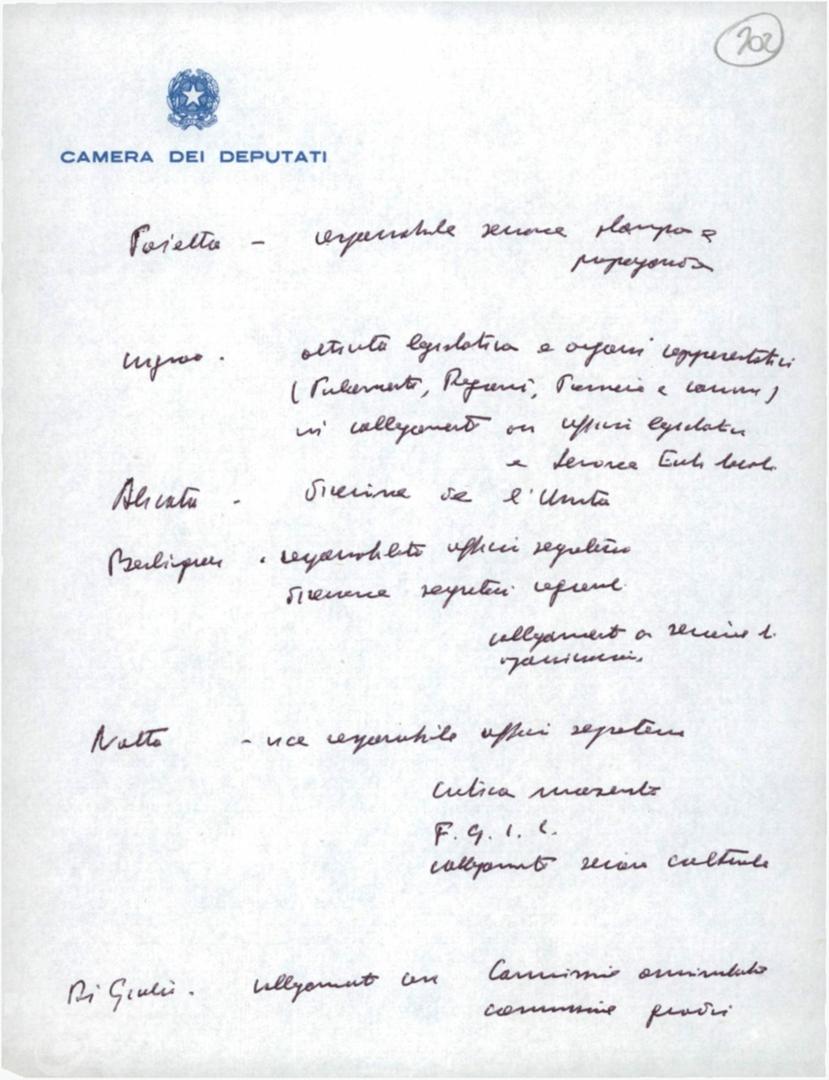 202
CAMERA DEI DEPUTATI
Pajetta - responsabile sezione stampa e
propaganda
Ingrao - attività legislativa e organi rappresentativi
(Parlamento, Regioni, Provincie e comuni)
in collegamento con uffici legislativi
e Sezione Enti locali
Alicata - direzione de l'Unità
Berlinguer - ufficio segreteria
direzione segreteri regionali
collegamento con sezione di
organizzazione
Natta - vice responsabile ufficio segreteria
critica marxista
F.G.I.C.
collegamento sezione culturale
Di Giulio - collegamento con Commissione
commissione quadri